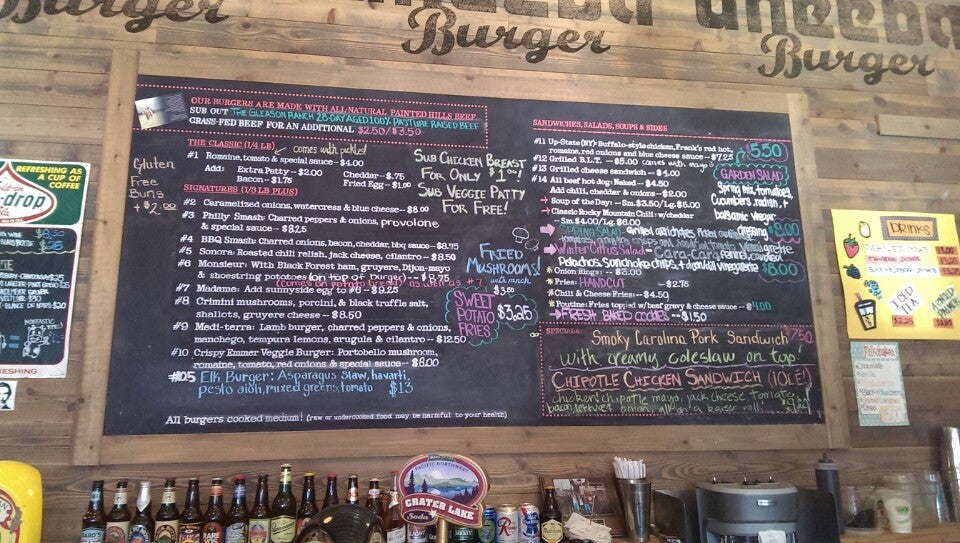 Burger
Burger
Burger
OUR BURGERS ARE MADE WITH ALL-NATURAL PAINTED HILLS BEEF
SUB OUT THE GLEASON RANCH 28-DAY AGED 100% PASTURE RAISED BEEF
GRASS-FED BEEF FOR AN ADDITIONAL $2.50/$3.50
Gluten
Free
Buns
+$2.00
THE CLASSIC (1/4 LB)
comes with pickles!
#1 Romaine, tomato & special sauce - $4.00
Add: Extra Patty - $2.00 Cheddar - $.75
Bacon - $1.75 Fried Egg - $1.00
SUB CHICKEN BREAST
FOR ONLY $1.00!
SUB VEGGIE PATTY
FOR FREE!
SIGNATURES (1/3 LB PLUS)
#2 Caramelized onions, watercress & blue cheese - $8.00
#3 Philly Smash: Charred peppers & onions, provolone
& special sauce - $8.25
#4 BBQ Smash: Charred onions, bacon, cheddar, bbq sauce - $8.75
#5 Sonora: Roasted chili relish, jack cheese, cilantro - $8.50
#6 Monsieur: With Black Forest ham, gruyere, Dijon-mayo
& shoestring potatoes (on top of burger) - $8.75
(comes on potato bread) as well as #7
#7 Madame: Add sunnyside egg to #6 - $9.25
#8 Crimini mushrooms, porcini, & black truffle salt,
shallots, gruyere cheese - $8.50
#9 Medi-terra: Lamb burger, charred peppers & onions,
manchego, tempura lemons, arugula & cilantro - $12.50
#10 Crispy Emmer Veggie Burger: Portobello mushroom,
romaine, tomato, red onions & special sauce - $8.00
#10.5 Elk Burger: Asparagus Slaw, havarti
pesto aioli, mixed greens, tomato $13
FRIED
MUSHROOMS!
with ranch
$3.50
SWEET
POTATO
FRIES
$3.25
All burgers cooked medium! (raw or undercooked food may be harmful to your health)
SANDWICHES, SALADS, SOUPS & SIDES
#11 Up-State (NY): Buffalo-style chicken, Frank's red hot,
romaine, red onions and blue cheese sauce - $7.25
#12 Grilled B.L.T. - $5.00 comes with mayo
#13 Grilled cheese sandwich - $4.00
#14 All beef hot dog: Naked - $4.50
Add chili, chedder & onions - $2.00
Soup of the Day: - Sm. $3.50/Lg. $5.00
Classic Rocky Mountain Chili: w/chedder
- Sm. $4.00/Lg. $6.00
$5.50
GARDEN SALAD
Spring mix, tomatoes,
Cucumbers, radish, +
balsamic vinegar
SPRING SALAD:
dressing $8.00
Winter Citrus Salad: Cara-Cara
Pistachios, Sonoma chips, + vinaigrette $8.00
Onion Rings: - $3.00
Fries: HANDCUT - $2.75
Chili & Cheese Fries: - $4.50
Poutine: Fries topped w/beef gravy & cheese sauce - $4.00
FRESH BAKED COOKIES - $1.50
SPECIALS:
Smoky Carolina Pork Sandwich $7.50
with creamy coleslaw on top!
CHIPOTLE CHICKEN SANDWICH (¡OLÉ!)
chicken, chipotle mayo, jack cheese, tomato
bacon, lettuce, onion, all on a kaiser roll!
REFRESHING AS
A CUP OF
COFFEE
DRINKS
ICED
TEA
$2.25
PACIFIC NORTHWEST
CRATER LAKE
Soda